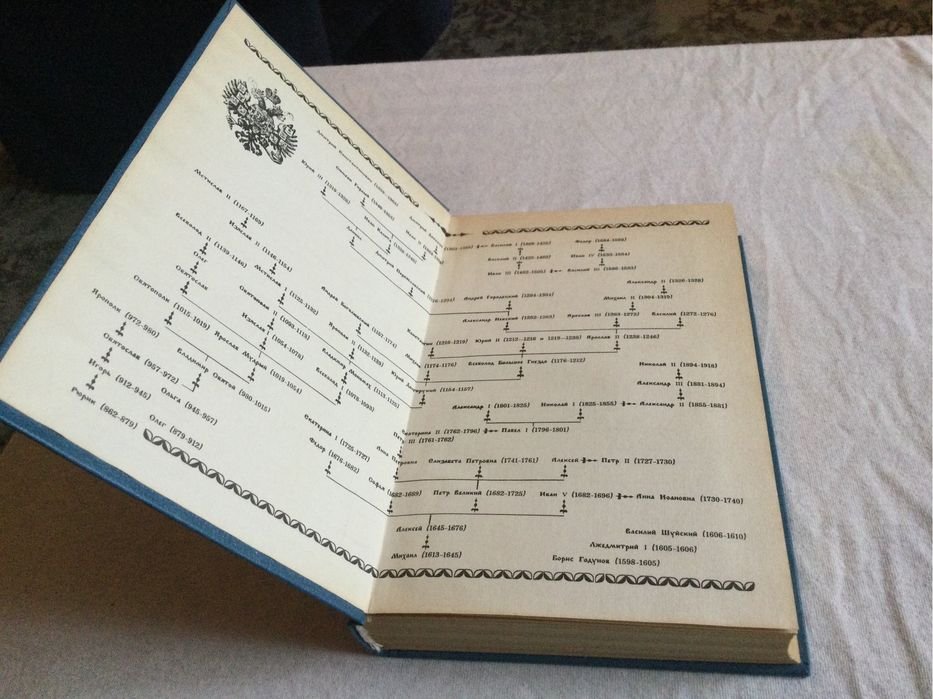 Дмитрий Константинович
Юрий III
Симеон Гордый
Иван Калита
Мстислав II (1167-1169)
Всеволод II (1139-1146)
Изяслав II (1146-1154)
Олег
Мстислав I (1125-1132)
Святослав
Святополк (1015-1019)
Ярополк (972-980)
II (1093-1113)
Изяслав I (1054-1078)
Святослав (957-972)
Владимир Святой (980-1015)
Ярослав Мудрый (1019-1054)
Всеволод I (1078-1093)
Владимир Мономах (1113-1125)
Игорь (912-945)
Ольга (945-957)
Рюрик (862-879)
Олег (879-912)
Екатерина I (1725-1727)
Федор (1676-1682)
Софья
Василий I (1389-1425)
Федор (1584-1598)
Василий II (1425-1462)
Иван IV (1533-1584)
Иван III (1462-1505)
Василий III (1505-1533)
Александр II (1326-1328)
Андрей Городецкий (1294-1304)
Михаил II (1304-1319)
Александр Невский (1252-1263)
Ярослав III (1263-1272)
Василий (1272-1276)
(1216-1219)
Юрий II (1212-1216 и 1219-1238)
Ярослав II (1238-1246)
(1174-1176)
Всеволод Большое Гнездо (1176-1212)
Николай II (1894-1918)
(1154-1157)
Александр III (1881-1894)
Александр I (1801-1825)
Николай I (1825-1855)
Александр II (1855-1881)
Екатерина II (1762-1796)
Павел I (1796-1801)
Петр III (1761-1762)
Анна Петровна
Елизавета Петровна (1741-1761)
Алексей
Петр II (1727-1730)
(1682-1689)
Петр Великий (1682-1725)
Иван V (1682-1696)
Анна Иоанновна (1730-1740)
Алексей (1645-1676)
Василий Шуйский (1606-1610)
Лжедмитрий I (1605-1606)
Михаил (1613-1645)
Борис Годунов (1598-1605)